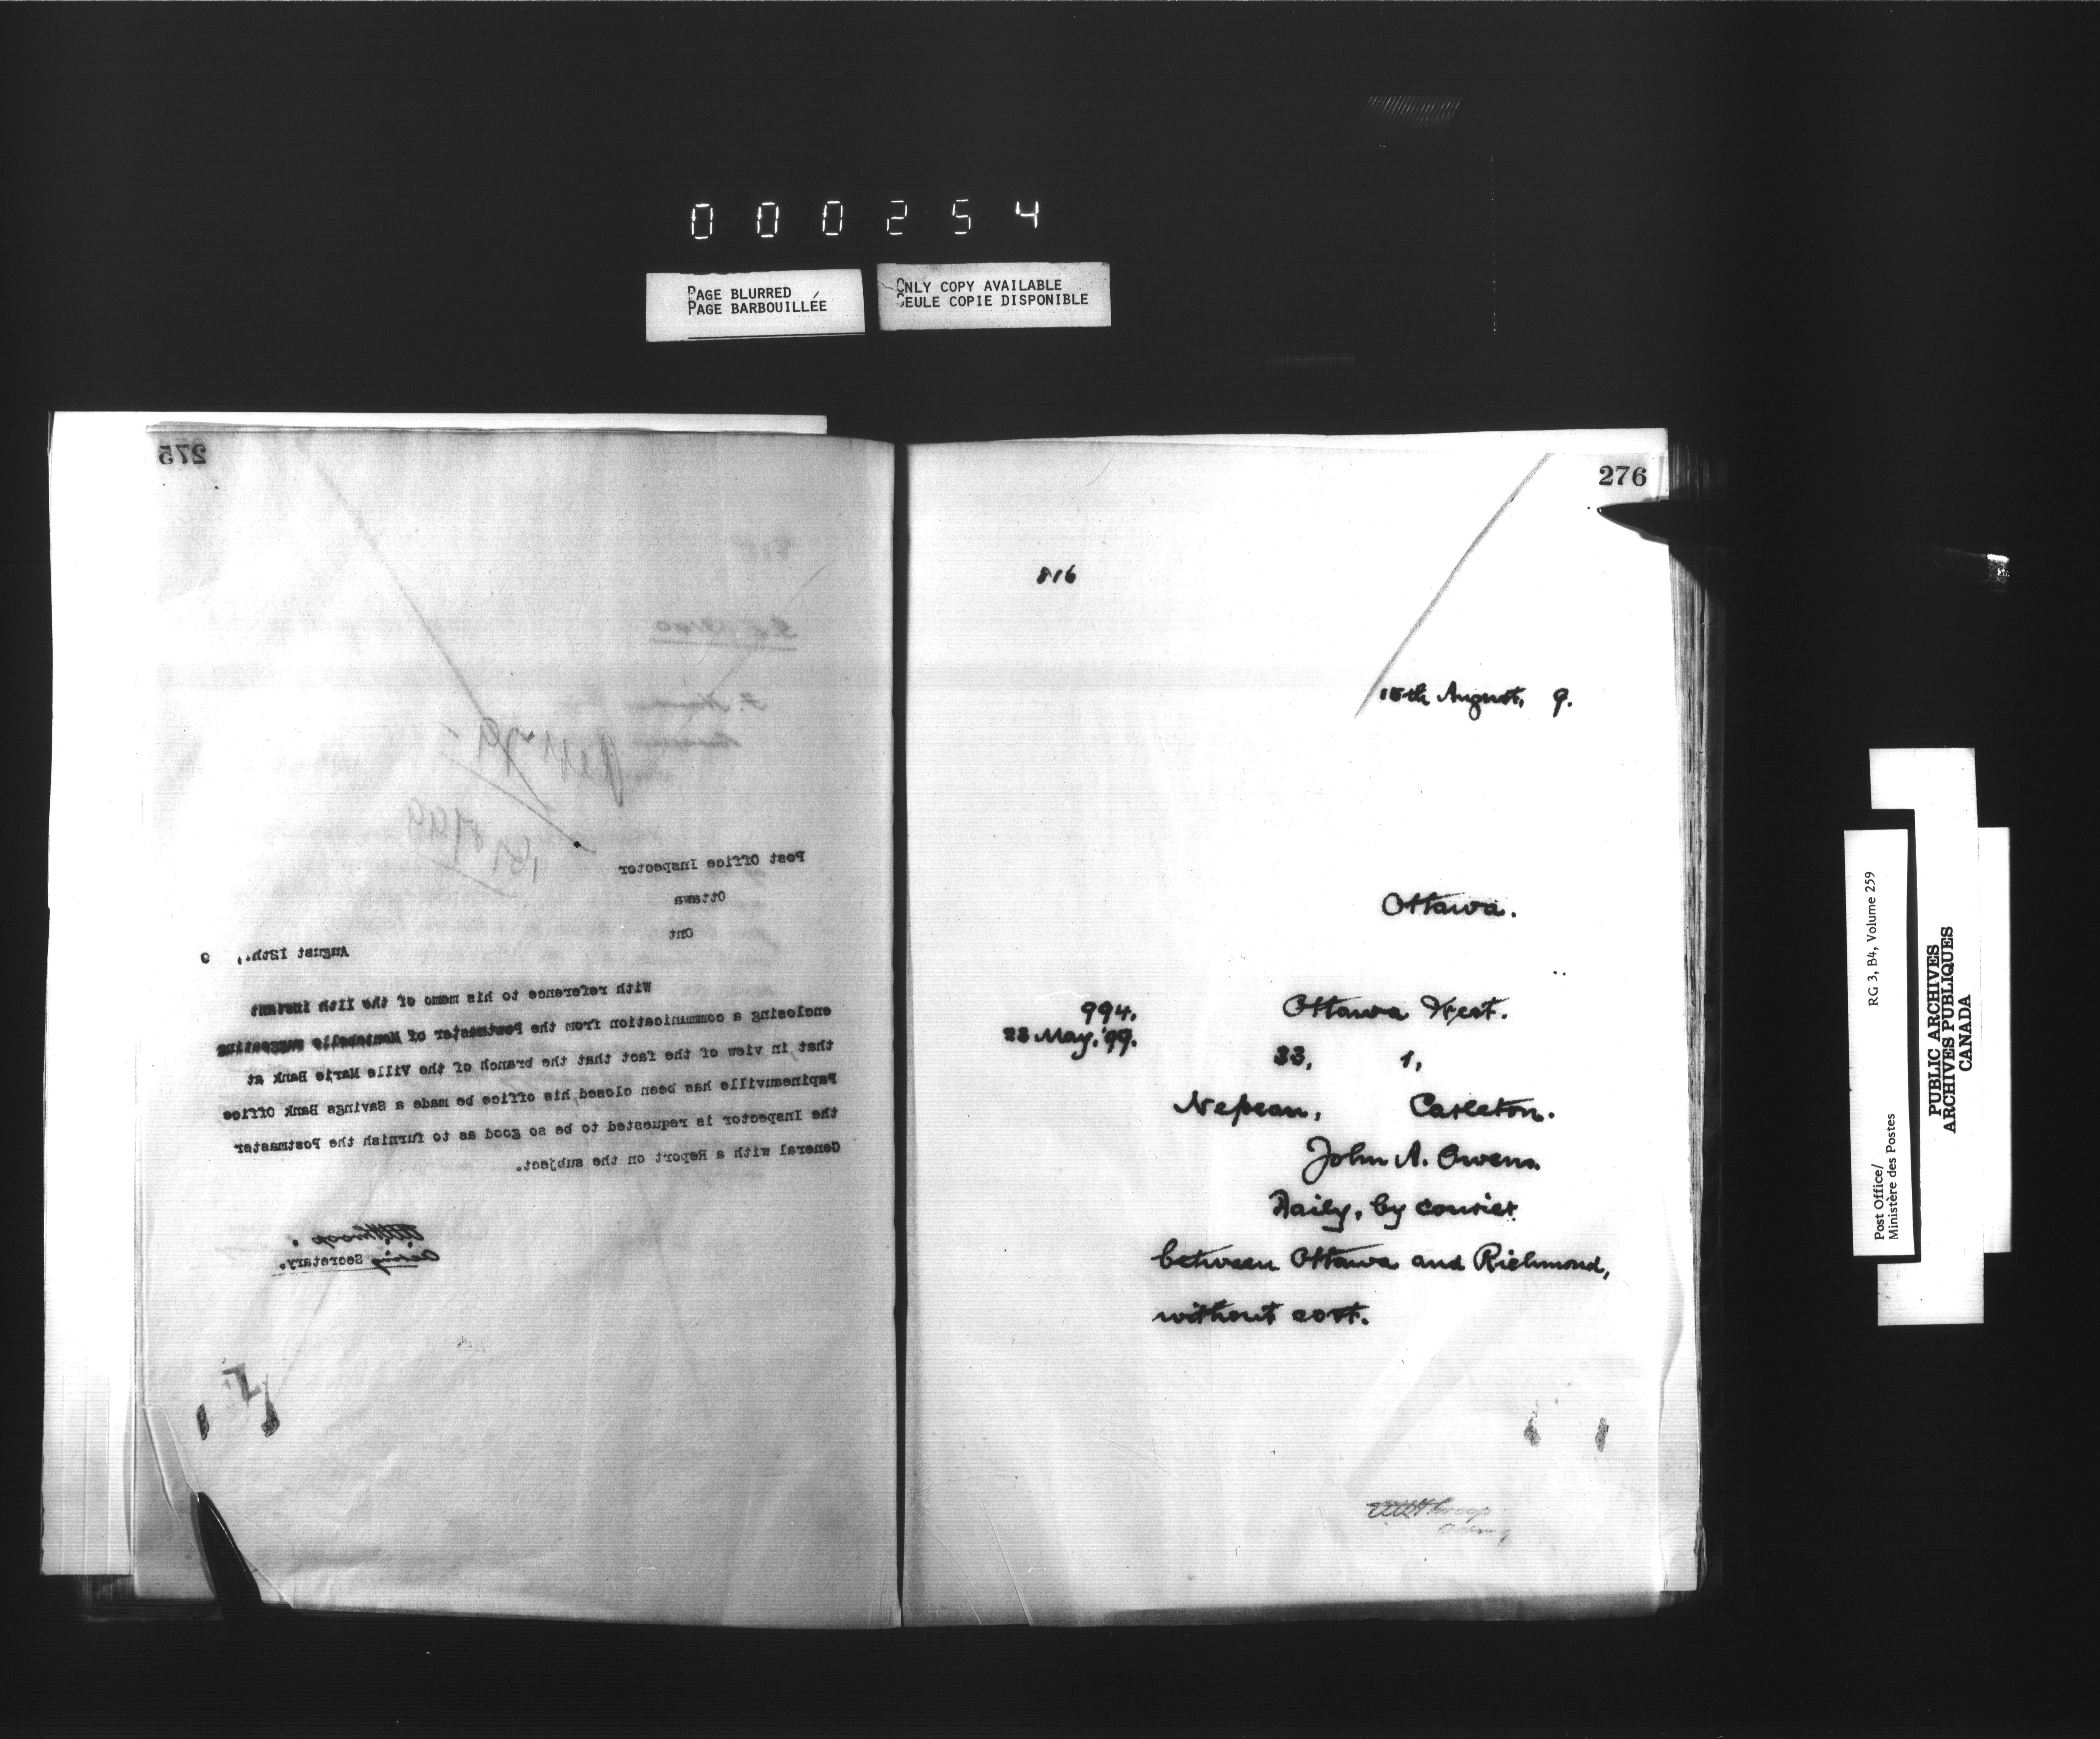 000254
PAGE BLURRED
PAGE BARBOUILLÉE
ONLY COPY AVAILABLE
SEULE COPIE DISPONIBLE
275
Post Office Inspector
Ottawa
Ont
August 12th., 9
With reference to his memo of the 11th instant
enclosing a communication from the Postmaster of Montebello suggesting
that in view of the fact that the branch of the Ville Marie Bank at
Papineauville has been closed, his office be made a Savings Bank Office
the Inspector is requested to be so good as to furnish the Postmaster
General with a Report on the subject.
Acting Secretary.
276
816
15th August, 9.
Ottawa.
994.
23 May, '99.
Ottawa West.
33, 1,
Nepean, Carleton.
John A. Owens.
Daily, by courier
between Ottawa and Richmond,
without cost.
Acting
Post Office/
Ministère des Postes
RG 3, B4, Volume 259
PUBLIC ARCHIVES
ARCHIVES PUBLIQUES
CANADA